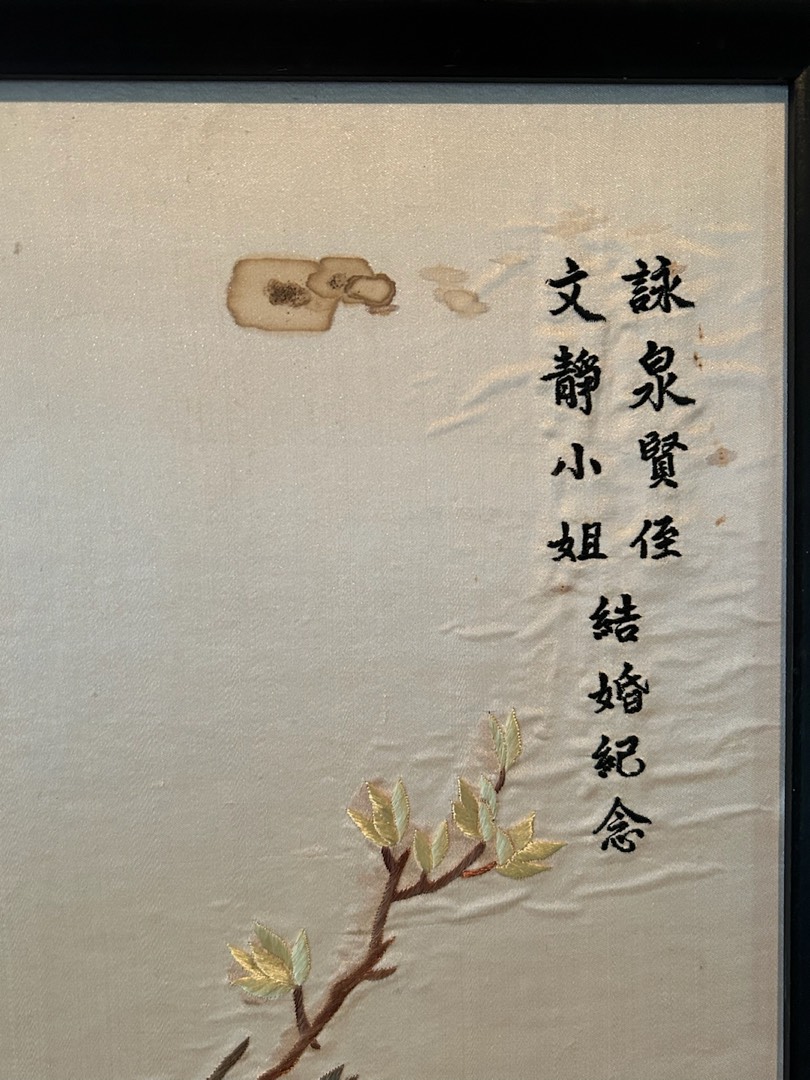 詠泉賢侄
文靜小姐
結婚紀念